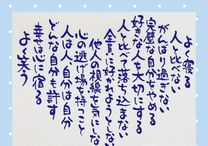 よく寝る
人と比べない
がんばり過ぎない
完璧な自分をやめる
好きな人を大切にする
人と比べて落ち込まない
全員に好かれようとしない
他人の視線を気にしない
心の逃げ場を持つこと
人は人自分は自分
どんな自分も許す
幸せは心に宿る
よく笑う